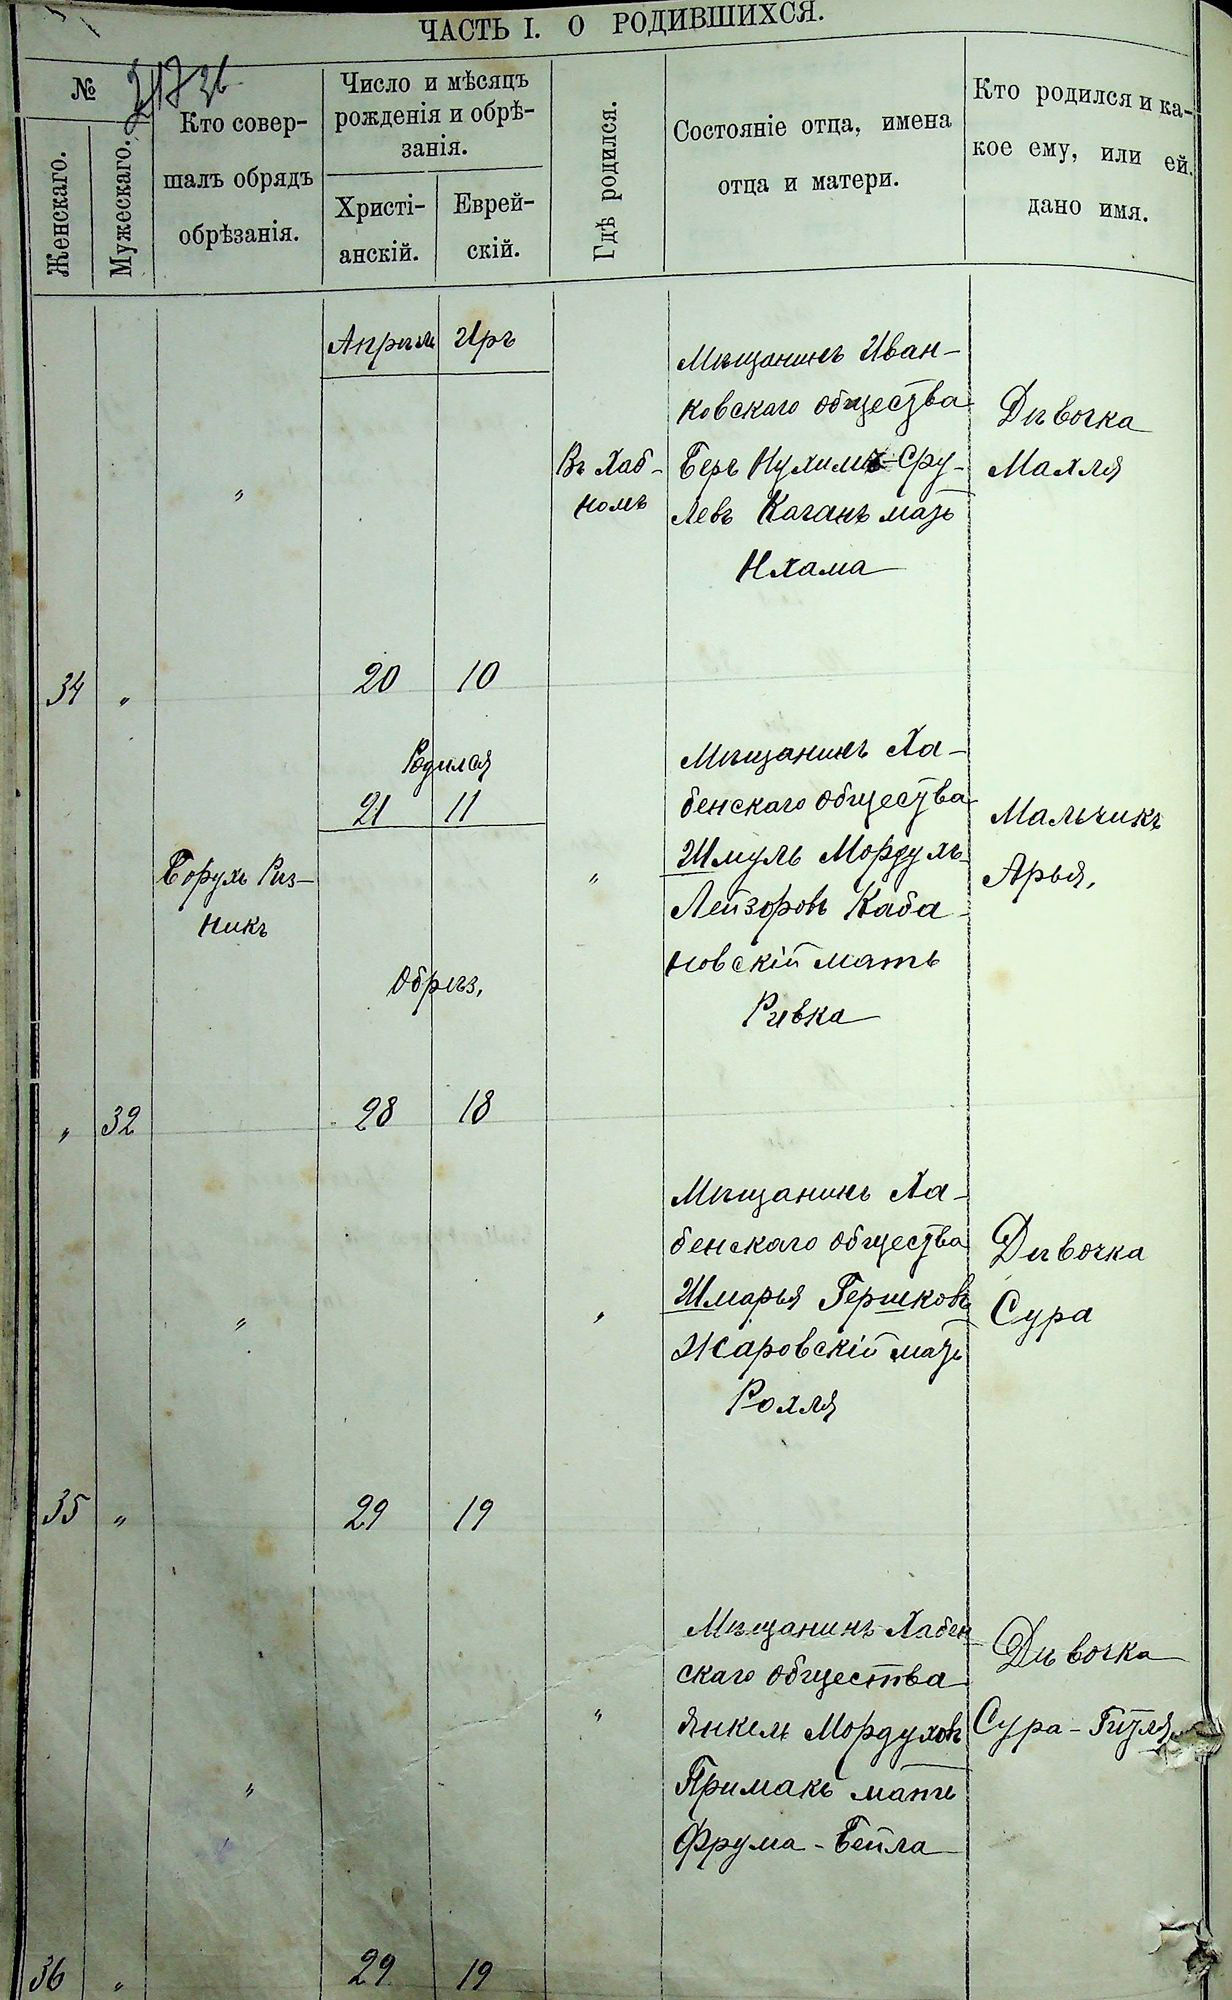 ЧАСТЬ I. О РОДИВШИХСЯ.
№
Женскаго.
Мужескаго.
Кто совер-
шалъ обрядъ
обрѣзанія.
Число и мѣсяцъ
рожденія и обрѣ-
занія.
Христі-
анскій.
Еврей-
скій.
Гдѣ родился.
Состояніе отца, имена
отца и матери.
Кто родился и ка-
кое ему, или ей
дано имя.
Апрель Иръ
34 „
„
20 10
Въ Хаб-
номъ
Мѣщанинъ Иван-
ковскаго общества
Беръ Нухимъ-Сру-
левъ Каганъ мать
Нхама
Дѣвочка
Махля
„ 32
Борухъ Риз-
никъ
Родился
21 11
Обрѣз,
28 18
„
Мѣщанинъ Ха-
бенскаго общества
Шмуль Мордухъ-
Лейзоровъ Каба-
новскій мать
Ривка
Мальчикъ
Арья,
35 „
„
29 19
„
Мѣщанинъ Ха-
бенскаго общества
Шмарья Гершковъ
Жаровскій мать
Рохля
Дѣвочка
Сура
36 „
„
29 19
„
Мѣщанинъ Хабен
скаго общества
Янкель Мордуховъ
Примакъ мать
Фрума-Бейла
Дѣвочка
Сура-Гитля